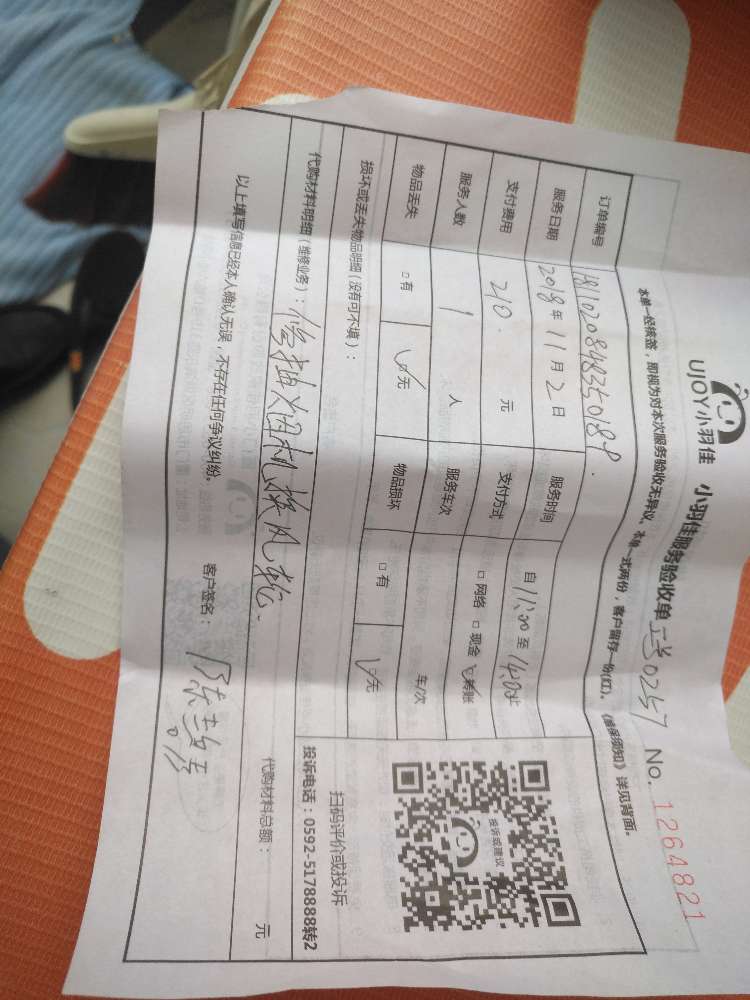 UJOY小羽佳 小羽佳服务验收单 工号0247 No. 1264821
本单一经核签，即视为对本次服务验收无异议。本单一式两份，客户留存一份(红)。《客服须知》详见背面。
订单编号
服务日期 2018年11月2日 服务时间 自11:00至14:00止
支付费用 210 元 支付方式 □网络 □现金 ☑转账
服务人数 1 人 服务车次 车/次
物品丢失 □有 ☑无 物品损坏 □有 ☑无
损坏或丢失物品明细（没有可不填）：
投诉或建议
扫码评价或投诉
投诉电话：0592-5178888转2
代购材料明细（维修业务）：修抽烟机换风轮.
代购材料总额： 元
以上填写信息已经本人确认无误，不存在任何争议纠纷。
客户签名：